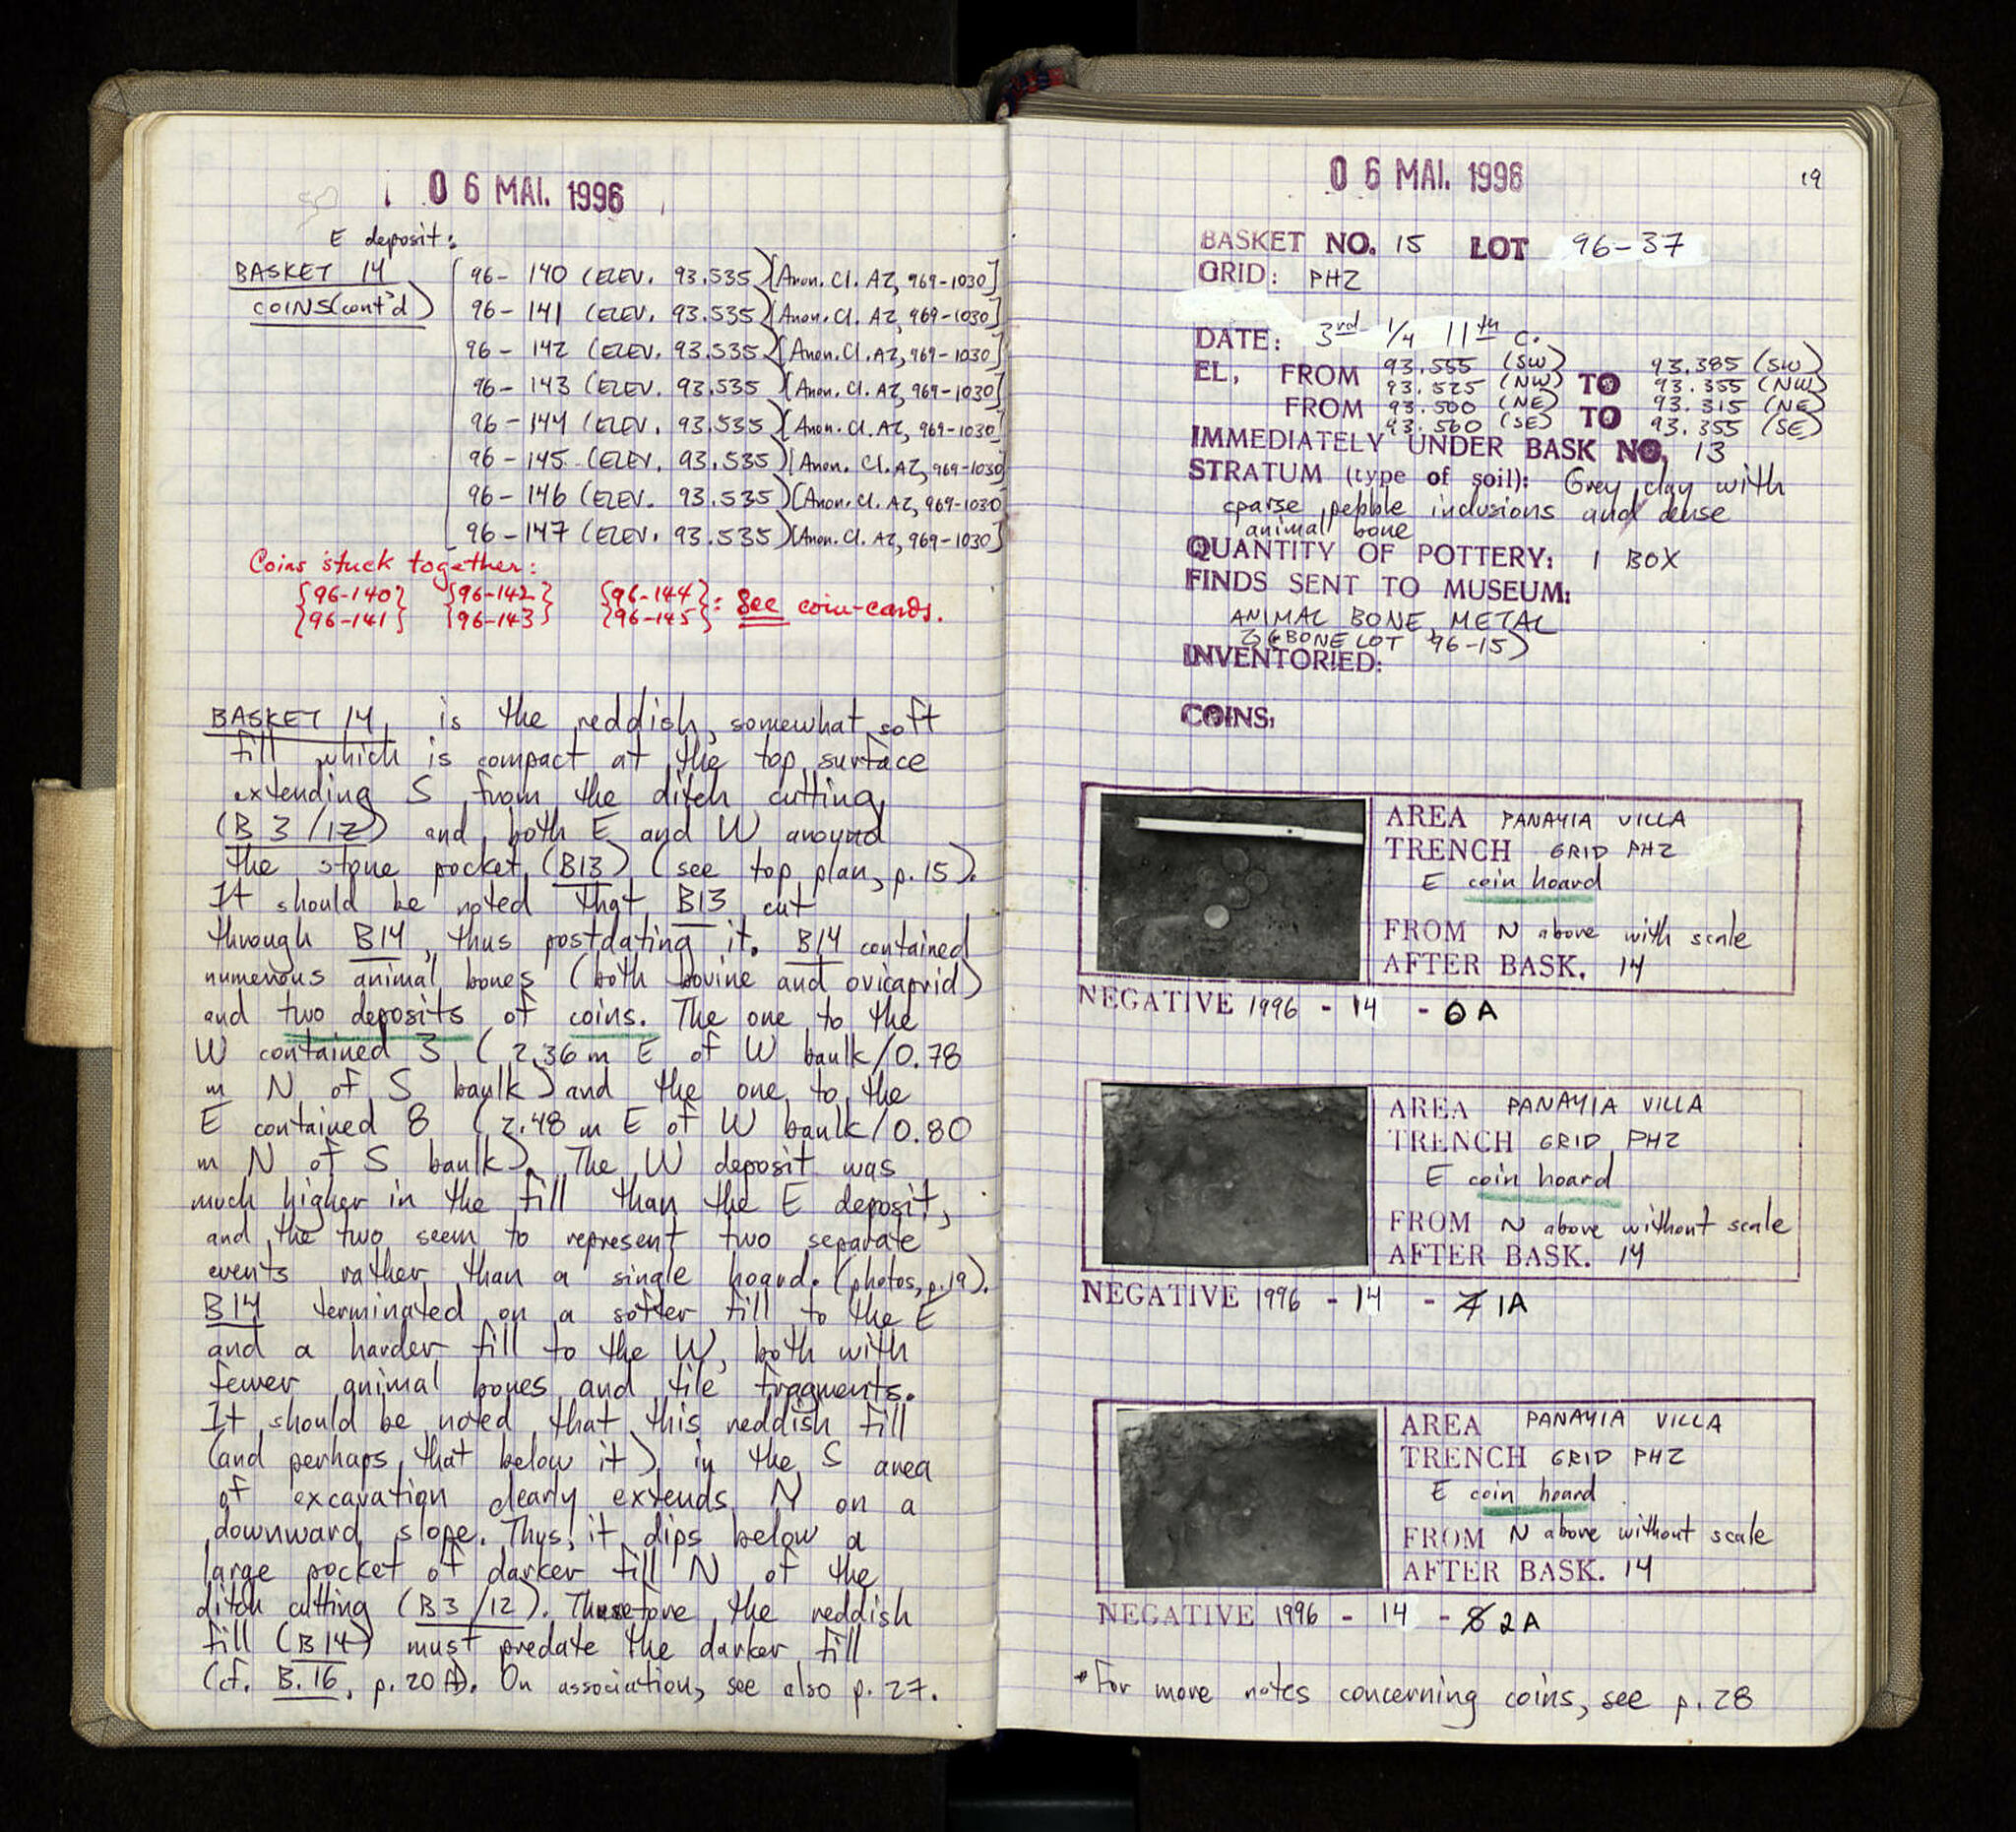 06 MAI. 1996
E deposit:
BASKET 14 96-140 (ELEV. 93.535) [Anon. Cl. A2, 969-1030]
COINS (cont'd) 96-141 (ELEV. 93.535) [Anon. Cl. A2, 969-1030]
96-142 (ELEV. 93.535) [Anon. Cl. A2, 969-1030]
96-143 (ELEV. 93.535) [Anon. Cl. A2, 969-1030]
96-144 (ELEV. 93.535) [Anon. Cl. A2, 969-1030]
96-145 (ELEV. 93.535) [Anon. Cl. A2, 969-1030]
96-146 (ELEV. 93.535) [Anon. Cl. A2, 969-1030
96-147 (ELEV. 93.535) [Anon. Cl. A2, 969-1030]
Coins stuck together:
{96-140} {96-142} {96-144}: See coin-cards.
{96-141} {96-143} {96-145}
BASKET 14 is the reddish, somewhat soft
fill which is compact at the top surface
extending S from the ditch cutting
(B3/12) and both E and W around
the stone pocket (B13) (see top plan, p.15).
It should be noted that B13 cut
through B14, thus postdating it. B14 contained
numerous animal bones (both bovine and ovicaprid)
and two deposits of coins. The one to the
W contained 3 (2.36 m E of W baulk/0.78
m N of S baulk) and the one to the
E contained 8 (2.48 m E of W baulk/0.80
m N of S baulk). The W deposit was
much higher in the fill than the E deposit,
and the two seem to represent two separate
events rather than a single hoard. (photos, p.19).
B14 terminated on a softer fill to the E
and a harder fill to the W, both with
fewer animal bones and tile fragments.
It should be noted that this reddish fill
(and perhaps that below it) in the S area
of excavation clearly extends N on a
downward slope. Thus, it dips below a
large pocket of darker fill N of the
ditch cutting (B3/12). Therefore the reddish
fill (B14) must predate the darker fill
(cf. B.16, p.20 ff). On association, see also p. 27.
06 MAI. 1996
19
BASKET NO. 15 LOT 96-37
GRID: PHZ
DATE: 3rd 1/4 11th c.
EL, FROM 93.555 (SW) TO 93.385 (SW)
93.525 (NW) 93.355 (NW)
FROM 93.500 (NE) TO 93.315 (NE)
93.560 (SE) 93.355 (SE)
IMMEDIATELY UNDER BASK NO. 13
STRATUM (type of soil): Grey clay with
sparse pebble inclusions and dense
animal bone
QUANTITY OF POTTERY: 1 BOX
FINDS SENT TO MUSEUM:
ANIMAL BONE, METAL
(BONE LOT 96-15)
INVENTORIED:
COINS:
AREA PANAYIA VILLA
TRENCH GRID PHZ
E coin hoard
FROM N above with scale
AFTER BASK. 14
NEGATIVE 1996 - 14 - 0A
AREA PANAYIA VILLA
TRENCH GRID PHZ
E coin hoard
FROM N above without scale
AFTER BASK. 14
NEGATIVE 1996 - 14 - 1A
AREA PANAYIA VILLA
TRENCH GRID PHZ
E coin hoard
FROM N above without scale
AFTER BASK. 14
NEGATIVE 1996 - 14 - 2A
*For more notes concerning coins, see p. 28